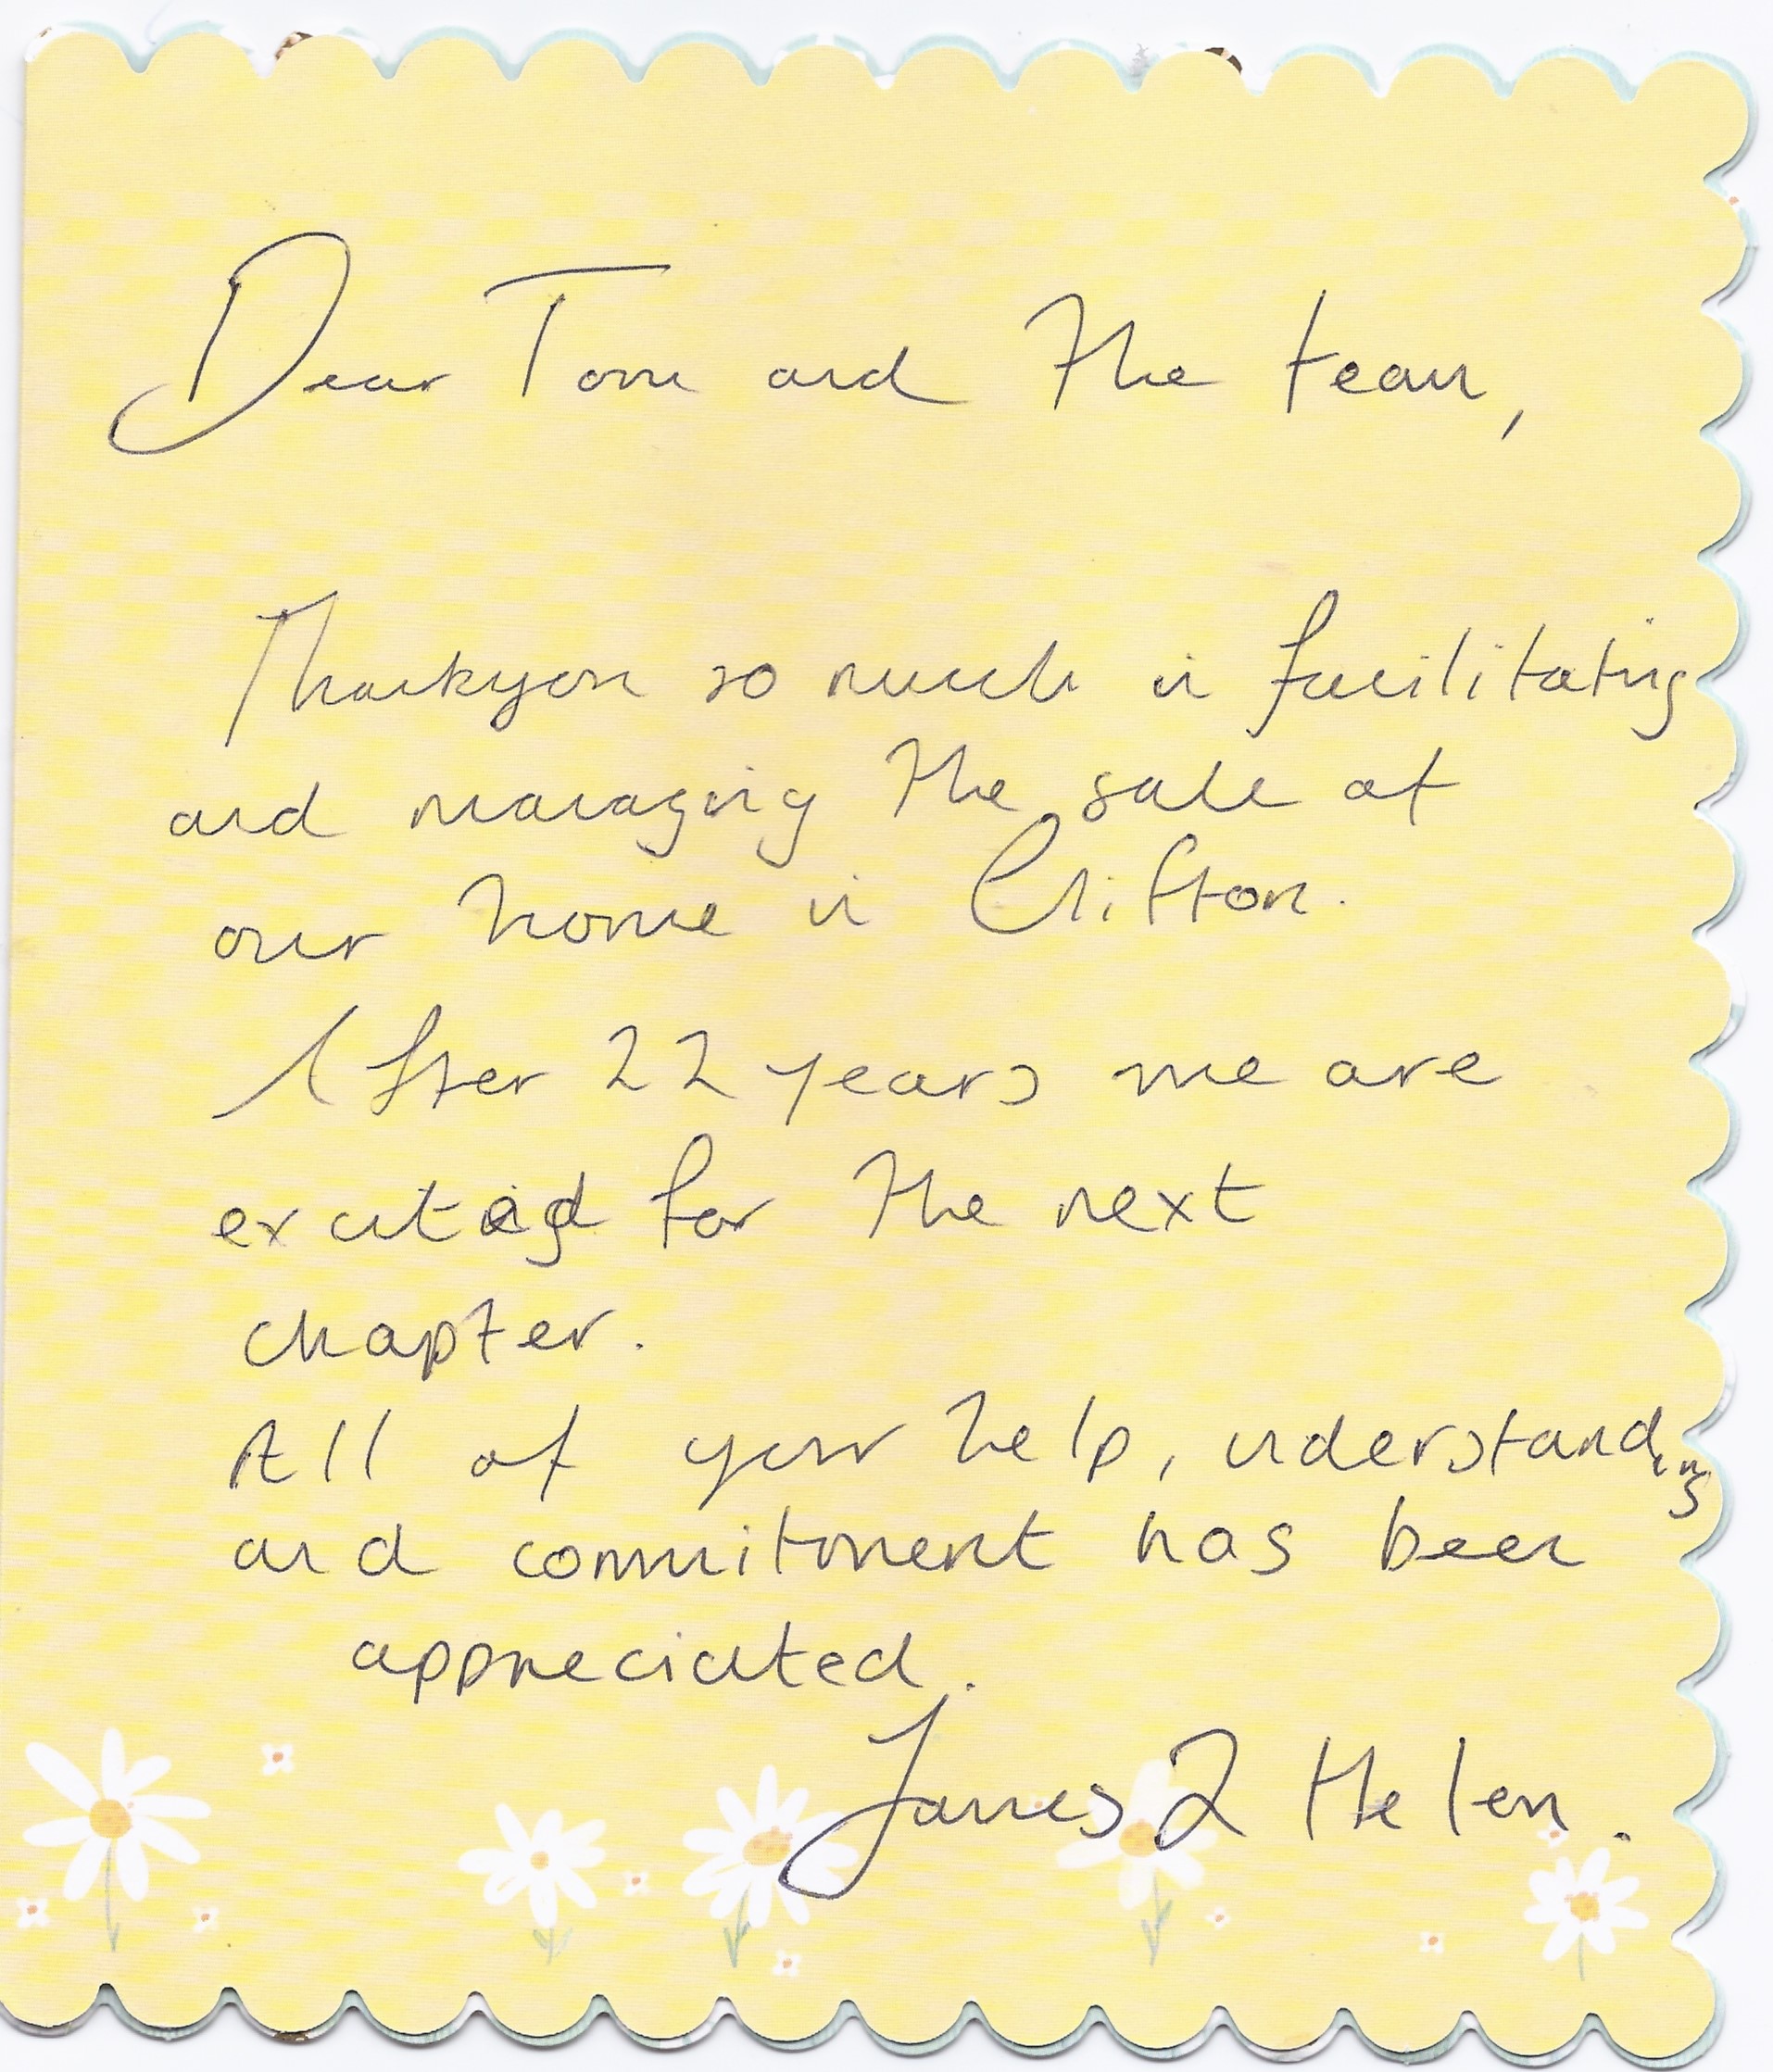 Dear Tom and the team,
Thankyou so much in facilitating
and managing the sale of
our home in Clifton.
After 22 years we are
excited for the next
chapter.
All of your help, understanding
and commitment has been
appreciated.
James & Helen.